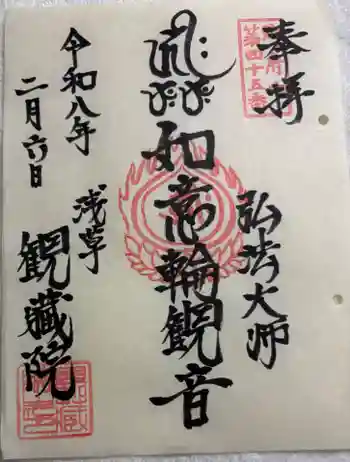 奉拝
第四十五番
弘法大師
如意輪観音
令和八年
二月六日
浅草
観蔵院